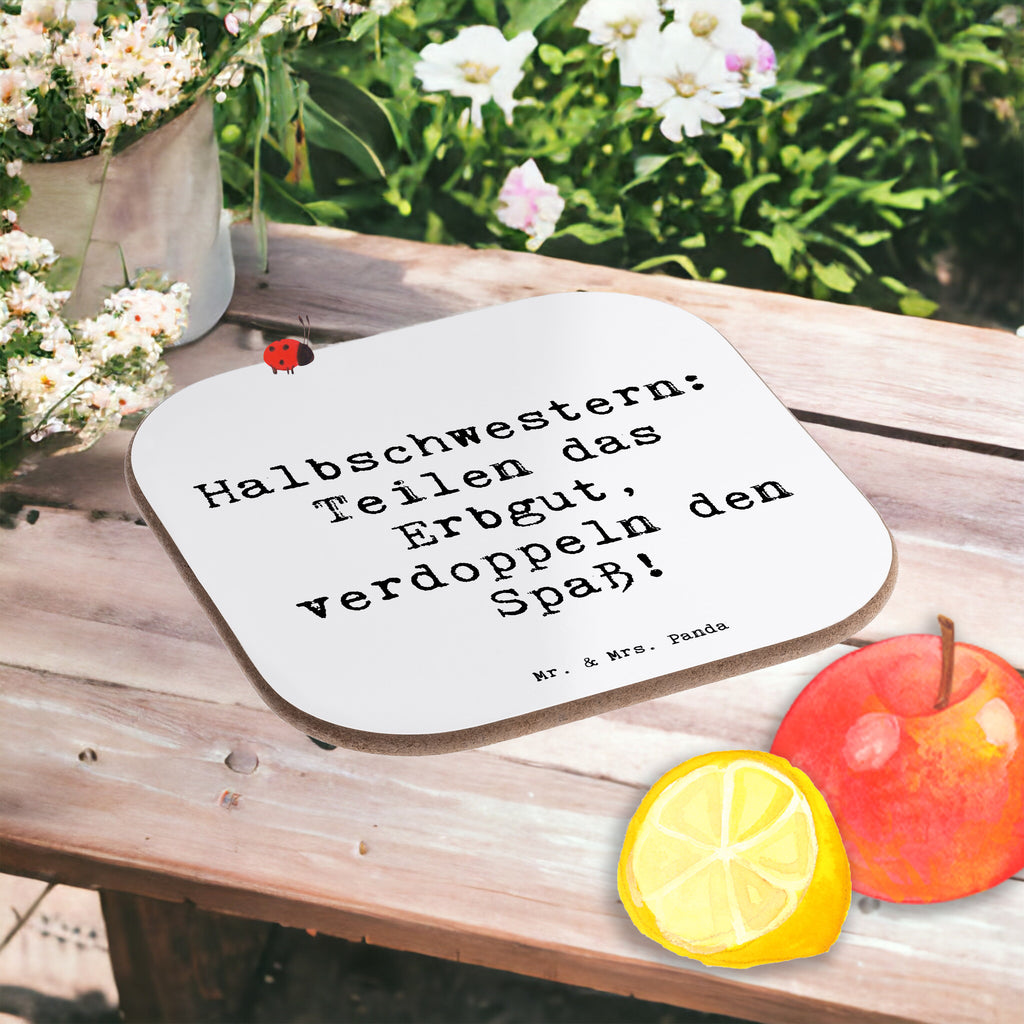 Halbschwestern:
Teilen das
Erbgut,
verdoppeln den
Spaß!
Mr. & Mrs. Panda